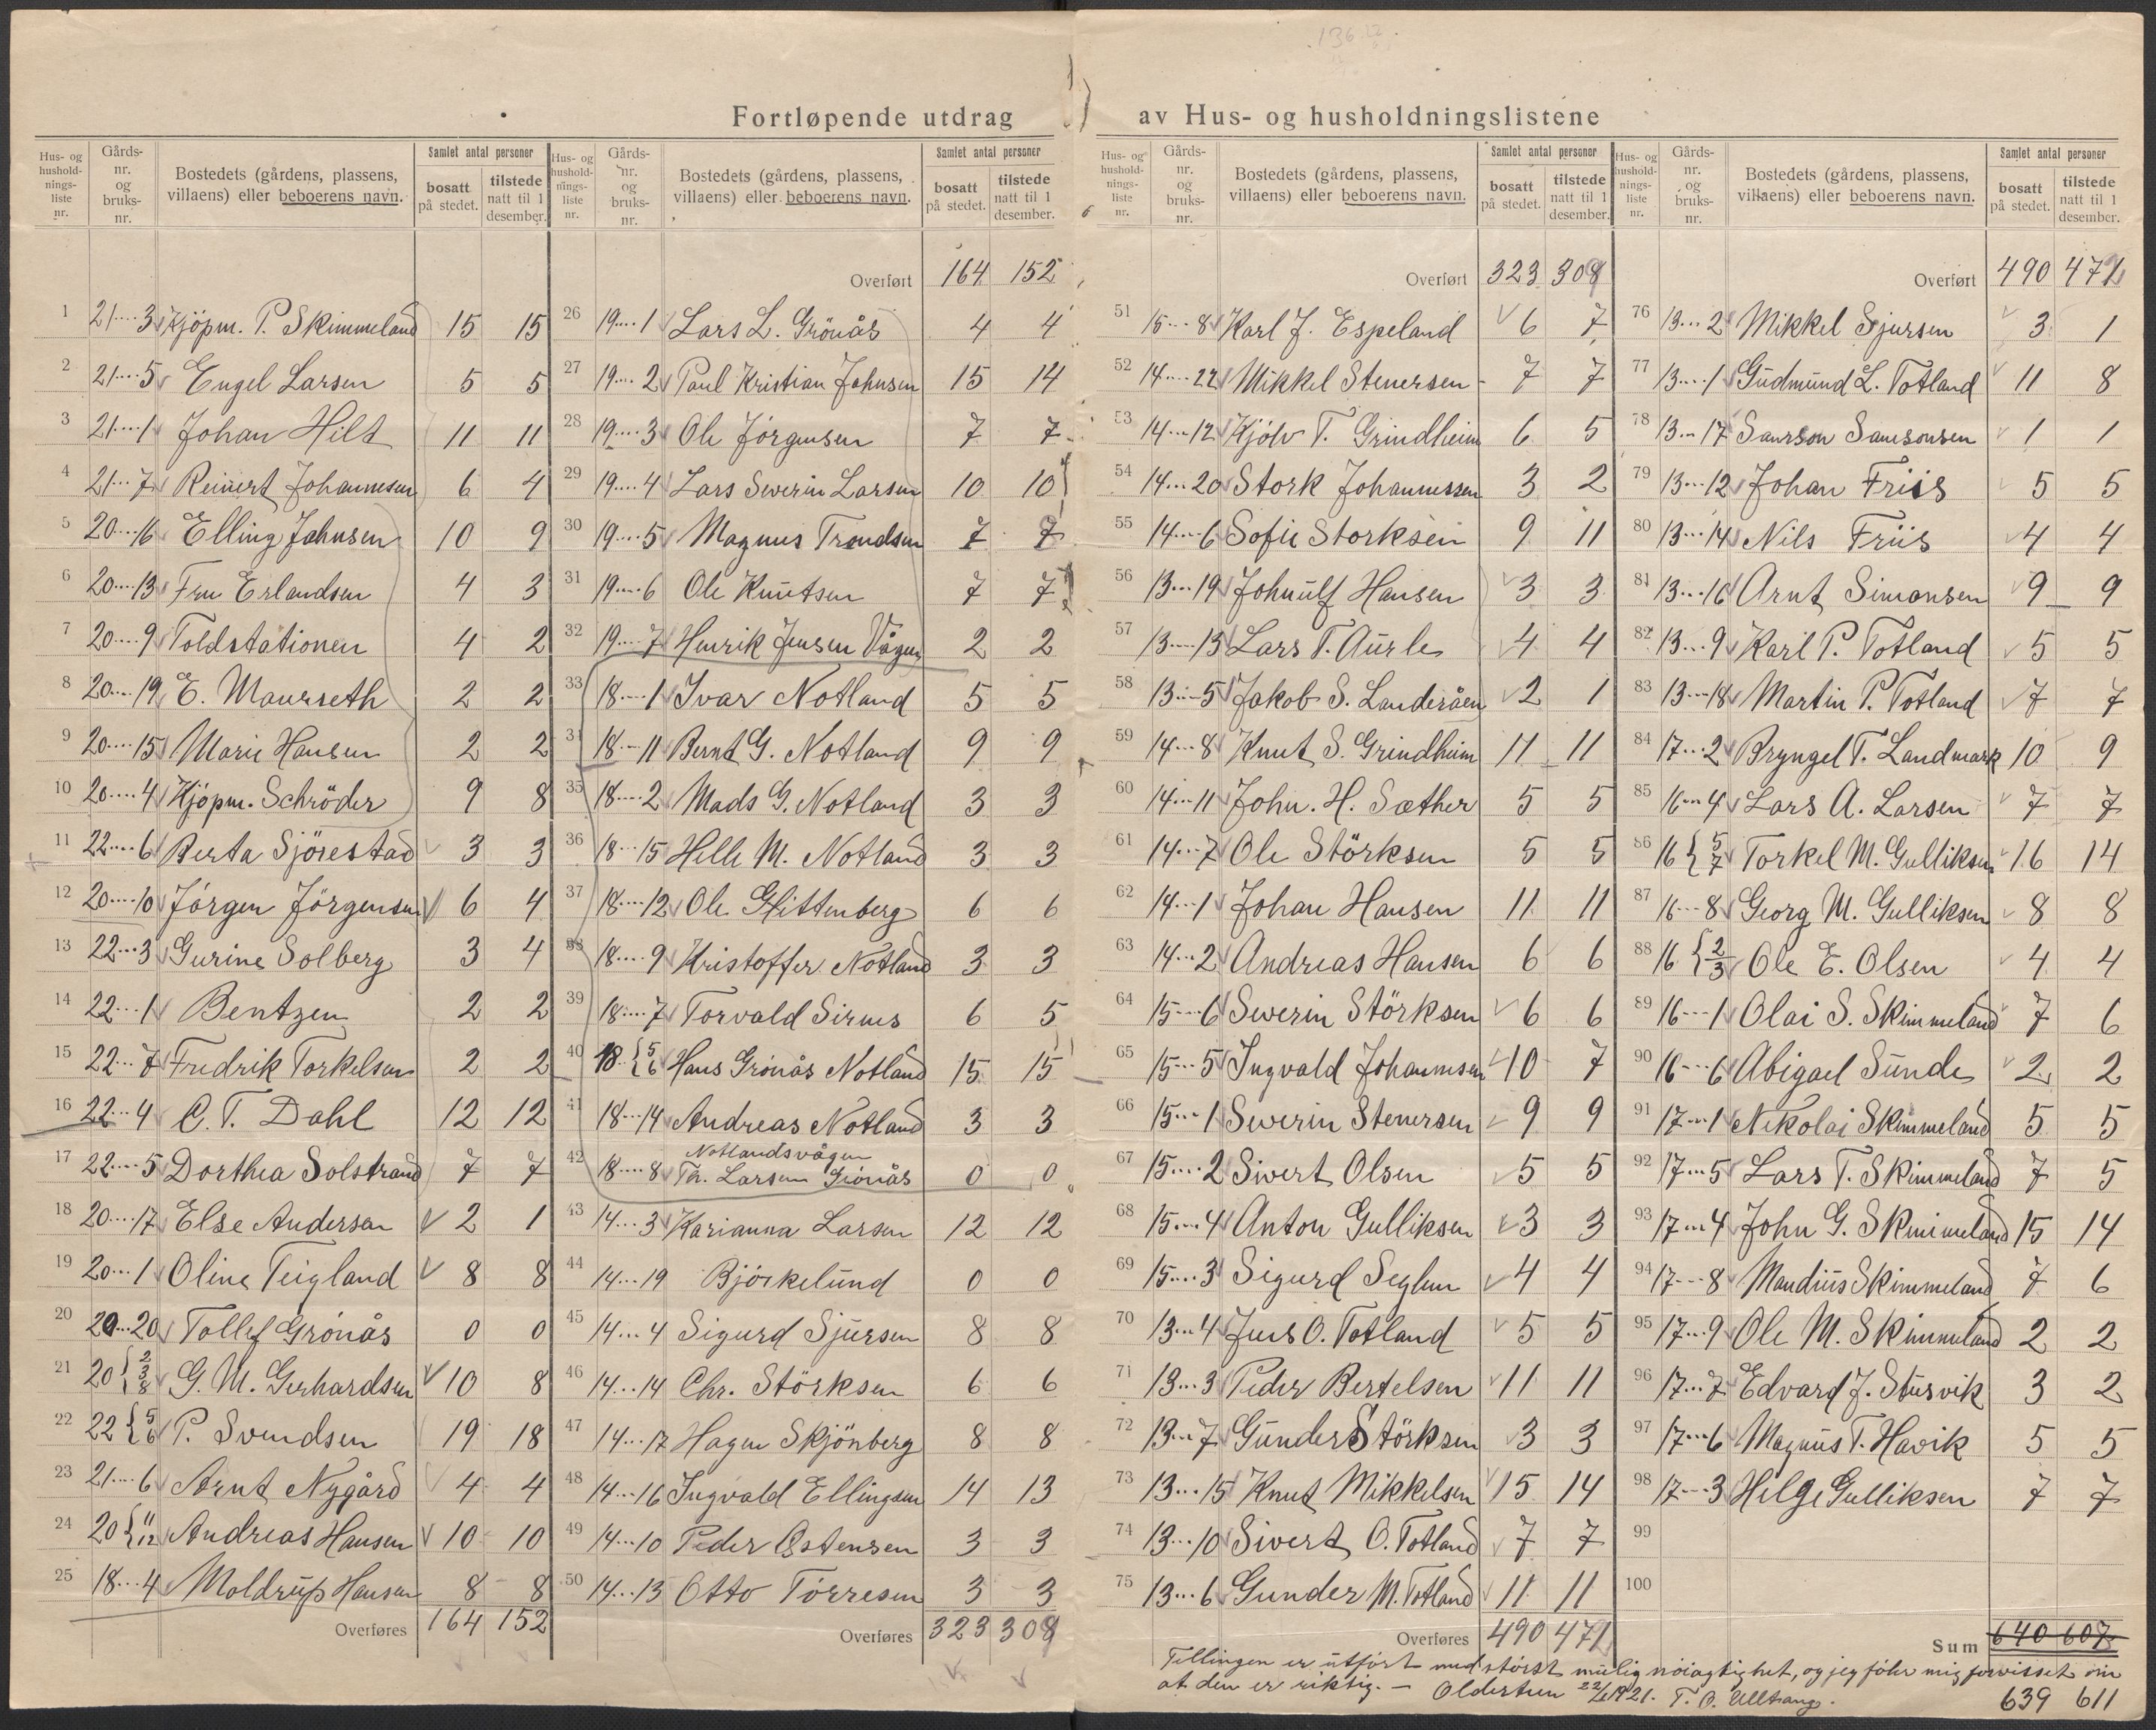 136
Fortløpende utdrag av Hus- og husholdningslistene
Hus- og husholdnings- liste nr. Gårds- nr. og bruks- nr. Bostedets (gårdens, plassens, villaens) eller beboerens navn. Samlet antal personer bosatt på stedet. tilstede natt til 1 desember.
1 21....3 Kjöpm. P. Skimmeland 15 15
2 21....5 Engel Larsen 5 5
3 21....1 Johan Hilt 11 11
4 21...7 Reinert Johannesen 6 4
5 20...16 Elling Johnsen 10 9
6 20...13 Fru Erlandsen 4 3
7 20....9 Toldstationen 4 2
8 20...19 E. Maurseth 2 2
9 20...15 Marie Hansen 2 2
10 20....4 Kjöpm. Schröder 9 8
11 22....6 Berta Sjörestad 3 3
12 20...10 Jörgen Jörgensen 6 4
13 22...3 Gurine Solberg 3 4
14 22...1 Bentzen 2 2
15 22...7 Fredrik Torkelsen 2 2
16 22...4 C. T. Dahl 12 12
17 22...5 Dorthea Solstrand 7 7
18 20...17 Else Andersen 2 1
19 20...1 Oline Teigland 8 8
20 20...20 Tollef Grönås 0 0
21 20 { 2 3 8 G. M. Gerhardsen 10 8
22 22 { 5 6 P. Svendsen 19 18
23 21...6 Arnt Nygård 4 4
24 20 { 11 12 Andreas Hansen 10 10
25 18...4 Moldrup Hansen 8 8
Overføres 164 152
Hus- og husholdnings- liste nr. Gårds- nr. og bruks- nr. Bostedets (gårdens, plassens, villaens) eller beboerens navn. Samlet antal personer bosatt på stedet. tilstede natt til 1 desember.
Overført 164 152
26 19....1 Lars L. Grönås 4 4
27 19....2 Paul Kristian Johnsen 15 14
28 19....3 Ole Jörgensen 7 7
29 19....4 Lars Severin Larsen 10 10
30 19....5 Magnus Trondsen 7 7
31 19....6 Ole Knutsen 7 7
32 19....7 Henrik Jensen Vågen 2 2
33 18....1 Ivar Notland 5 5
34 18...11 Bernt G. Notland 9 9
35 18....2 Mads G. Notland 3 3
36 18...15 Helle M. Notland 3 3
37 18...12 Ole Glittenberg 6 6
38 18....9 Kristoffer Notland 3 3
39 18....7 Torvald Sirnes 6 5
40 18 { 5 6 Hans Grönås Notland 15 15
41 18...14 Andreas Notland 3 3
Notlandsvågen
42 18....8 Th. Larsen Grönås 0 0
43 14...3 Karianna Larsen 12 12
44 14...19 Björkelund 0 0
45 14...4 Sigurd Sjursen 8 8
46 14...14 Chr. Störksen 6 6
47 14...17 Hagen Skjönberg 8 8
48 14...16 Ingvald Ellingsen 14 13
49 14...10 Peder Østensen 3 3
50 14...13 Otto Törresen 3 3
Overføres 323 308
Hus- og husholdnings- liste nr. Gårds- nr. og bruks- nr. Bostedets (gårdens, plassens, villaens) eller beboerens navn. Samlet antal personer bosatt på stedet. tilstede natt til 1 desember.
Overført 323 308
51 15...8 Karl J. Espeland 6 7
52 14...22 Mikkel Stenersen 7 7
53 14...12 Kjölv T. Grindheim 6 5
54 14...20 Stork Johannessen 3 2
55 14...6 Sofie Storksen 9 11
56 13...19 Johnulf Hansen 3 3
57 13...13 Lars T. Aurle 4 4
58 13...5 Jakob S. Landeråen 2 1
59 14...8 Knut S. Grindheim 11 11
60 14...11 John. H. Sæther 5 5
61 14...7 Ole Störksen 5 5
62 14...1 Johan Hansen 11 11
63 14...2 Andreas Hansen 6 6
64 15...6 Severin Störksen 6 6
65 15...5 Ingvald Johannesen 10 7
66 15...1 Severin Stenersen 9 9
67 15...2 Sivert Olsen 5 5
68 15...4 Anton Gulliksen 3 3
69 15...3 Sigurd Seglem 4 4
70 13...4 Jens O. Totland 5 5
71 13...3 Peder Bertelsen 11 11
72 13...7 Gunder Störksen 3 3
73 13...15 Knut Mikkelsen 15 14
74 13...10 Sivert O. Totland 7 7
75 13...6 Gunder M. Totland 11 11
Overføres 490 471
Hus- og husholdnings- liste nr. Gårds- nr. og bruks- nr. Bostedets (gårdens, plassens, villaens) eller beboerens navn. Samlet antal personer bosatt på stedet. tilstede natt til 1 desember.
Overført 490 471
76 13...2 Mikkel Sjursen 3 1
77 13...1 Gudmund L. Totland 11 8
78 13...17 Samson Samsonsen 1 1
79 13...12 Johan Friis 5 5
80 13...14 Nils Friis 4 4
81 13...16 Arnt Simonsen 9 9
82 13...9 Karl P. Totland 5 5
83 13...18 Martin P. Totland 7 7
84 17...2 Bryngel T. Landmark 10 9
85 16...4 Lars A. Larsen 7 7
86 16 { 5 7 Torkel M. Gulliksen 16 14
87 16...8 Georg M. Gulliksen 8 8
88 16 { 2 3 Ole E. Olsen 4 4
89 16...1 Olai S. Skimmeland 7 6
90 16...6 Abigael Sunde 2 2
91 17...1 Nikolai Skimmeland 5 5
92 17...5 Lars T. Skimmeland 7 5
93 17...4 John G. Skimmeland 15 14
94 17...8 Mandius Skimmeland 7 6
95 17...9 Ole M. Skimmeland 2 2
96 17...7 Edvard J. Stusvik 3 2
97 17...6 Magnus T. Havik 5 5
98 17...3 Helge Gulliksen 7 7
99
100
Sum 640 607
Tellingen er utfört med störst mulig nöiagtighet, og jeg föler mig forvisset om
at den er riktig. — Oldertun 22/1 1921. T. O. Ulltang.
639 611